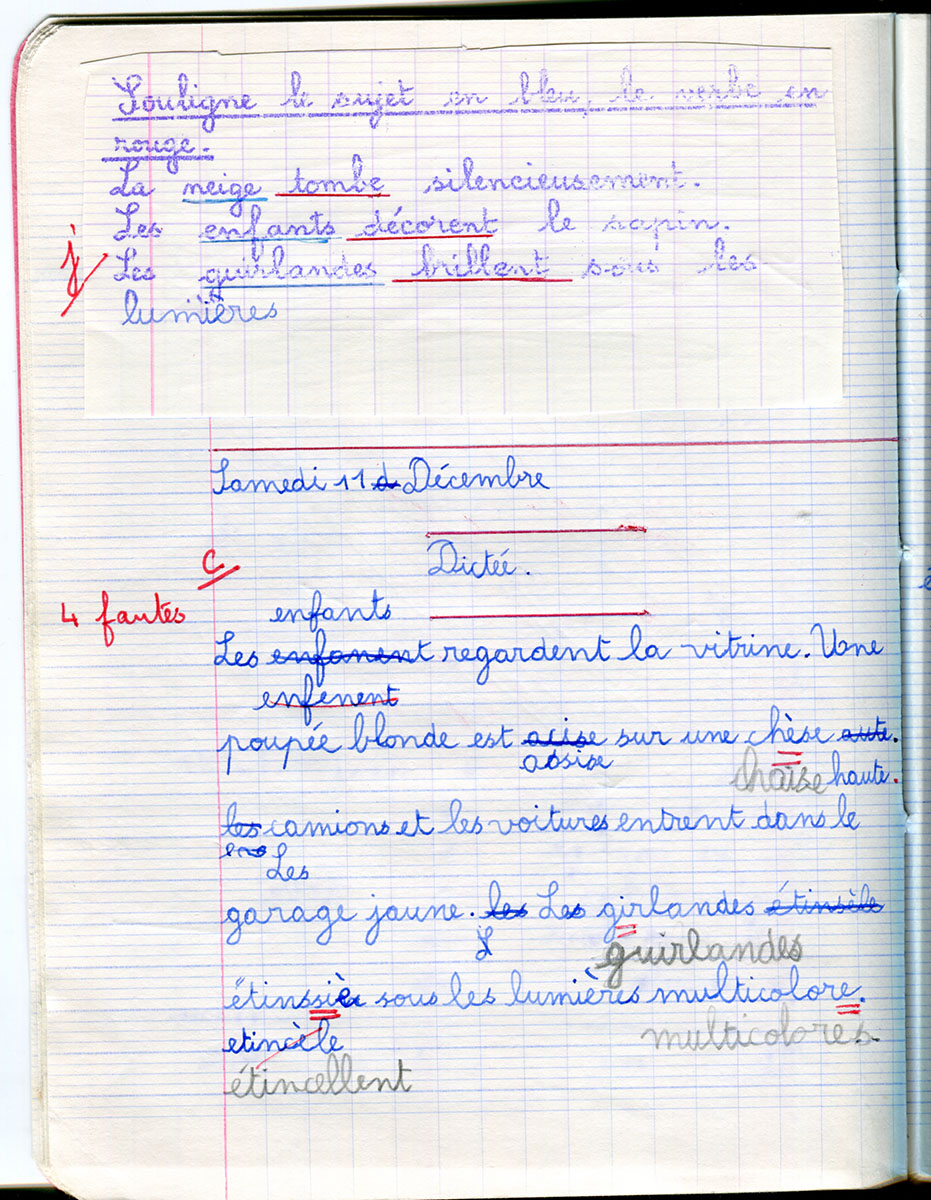 Souligne le sujet en bleu, le verbe en
rouge.
La neige tombe silencieusement.
Les enfants décorent le sapin.
Les guirlandes brillent sous les
lumières
Samedi 11 d Décembre
C
Dictée.
4 fautes
enfants
Les enfanent regardent la vitrine. Une
enfenent
poupée blonde est acise sur une chèse aute.
assise chaise haute.
les camions et les voitures entrent dans le
Les
garage jaune. les Les girlandes étinsèle
L guirlandes
étinssièle sous les lumières multicolore.
etincèle multicolores.
étincellent